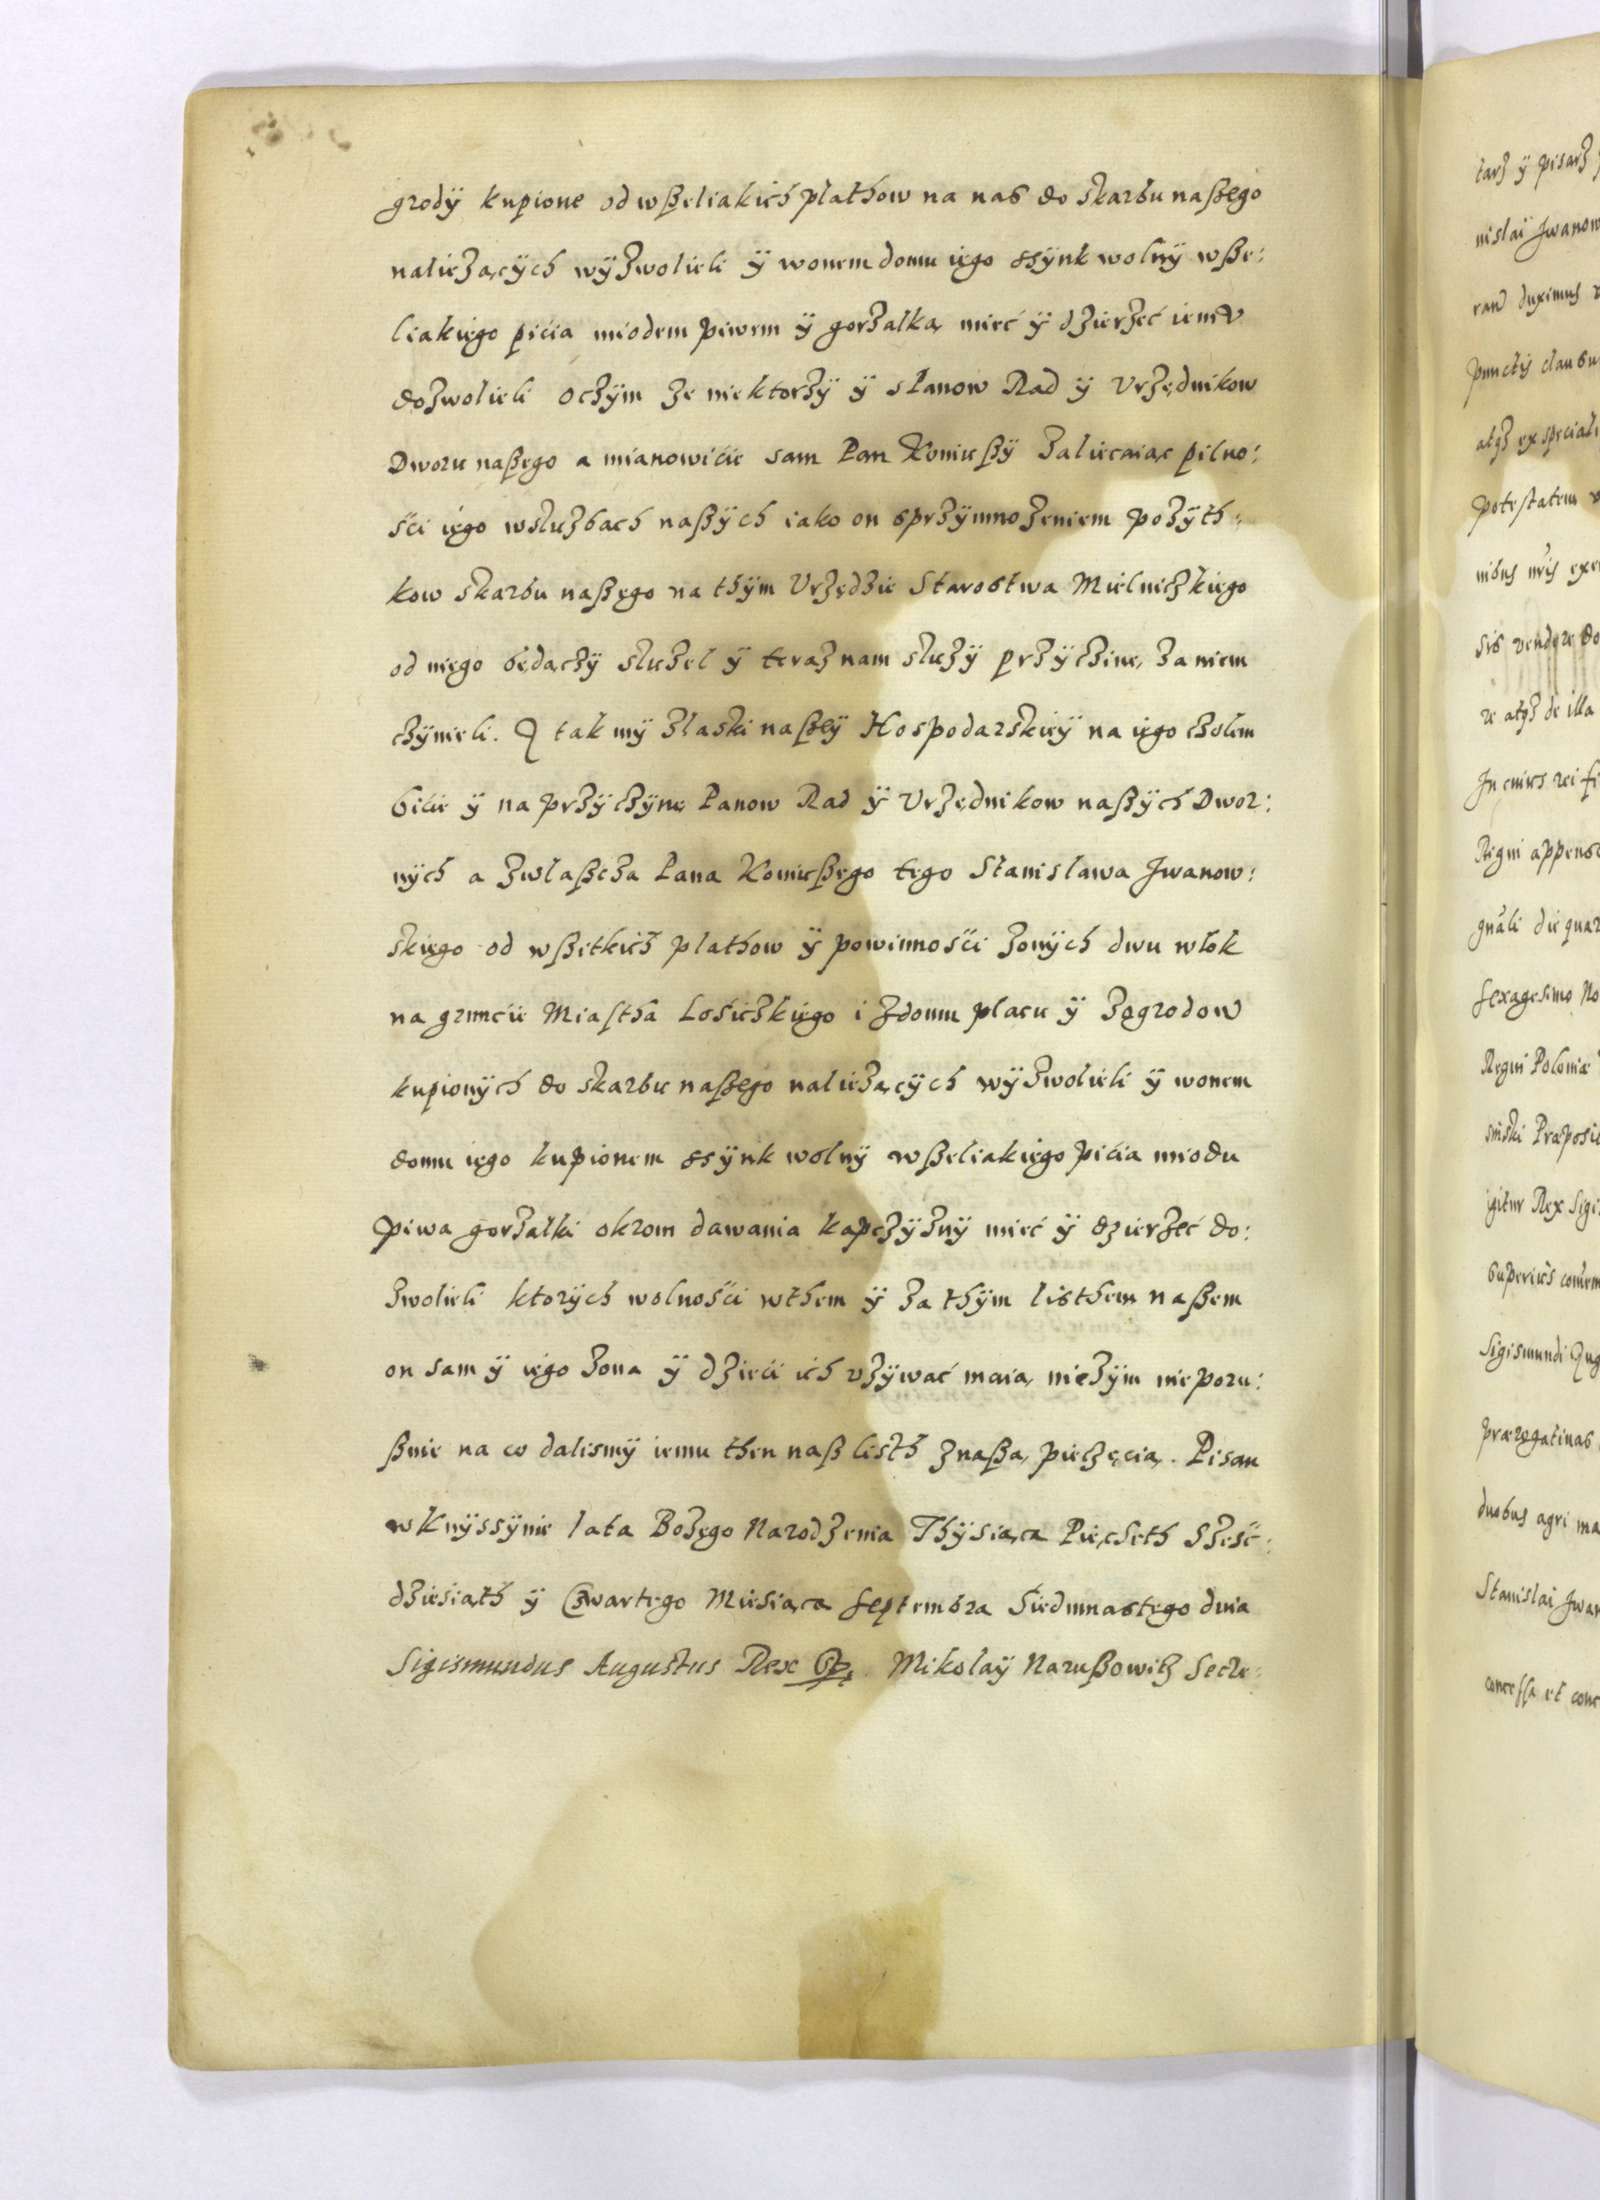 grodÿ kupione od wßeliakich plathow na nas do skarbu naßego
naliezących wÿzwolieli ÿ wonem domu iego ssÿnk wolnÿ wße:
liakiego picia miodem piwem ÿ gorzalką mieć ÿ dzierzeć iemv
dozwolieli oczÿm ze niektorzÿ ÿ stanow Rad ÿ Vrzędnikow
Dworu naßego a mianowicie sam Pan Koniußÿ zaliecaiąc pilno:
ści iego wsluzbach naßÿch iako on sprzÿmnozeniem pozÿth:
kow skarbu naßego na thÿm Vrzędzie Starostwa Mielniczkiego
od niego będączÿ sluzel ÿ teraz nam sluzÿ przÿczinę zaniem
czÿnieli. I tak mÿ zlaski naßeÿ Hospodarskieÿ na iego czolem
bicie ÿ na przÿczÿnę Panow Rad ÿ Vrzędnikow naßÿch Dwor:
nÿch a zwlaßcza Pana Koniußego tego Stanislawa Iwanow:
skiego od wßitkich plathow ÿ powinności zonÿch dwu wlok
na gruncie Miastha Losiczkiego i zdomu placu ÿ zagrodow
kupionÿch do skarbu naßego naliezącÿch wÿzwolieli ÿ wonem
domu iego kupionem ssÿnk wolnÿ wßeliakiego picia miodu
piwa gorzalki okrom dawania kapczÿznÿ mieć ÿ dzierzeć do:
zwolieli ktorÿch wolności wthem ÿ za thÿm listhem naßem
on sam ÿ iego zona ÿ dzieci ich vzÿwać maią niczÿm nieporu:
ßnie na co dalismÿ iemu then naß listh znaßą pieczęcią. Pisan
w Knÿssÿnie lata Bozego Narodzenia Thÿsiąca Pięcseth Szesć:
dziesiąth ÿ Czwartego Miesiąca Septembra Siedmnastego dnia
Sigismundus Augustus Rex Mikolaÿ Narußowicz Secre:
tarz ÿ pisarz
nislai Iwanow
rand duximus
punctis clausu
atqz ex speciali
potestatem
nibus nris exe
sis vendere do
re atqz de illa
In cuius rei fi
Regni appens
gnali die quar
sexagesimo No
Regni Poloniæ
sinski Præposit
igitur Rex Sigi
superius
Sigismundi Aug
prærogativas
duobus agri ma
Stanislai Iwan
concessa et conc